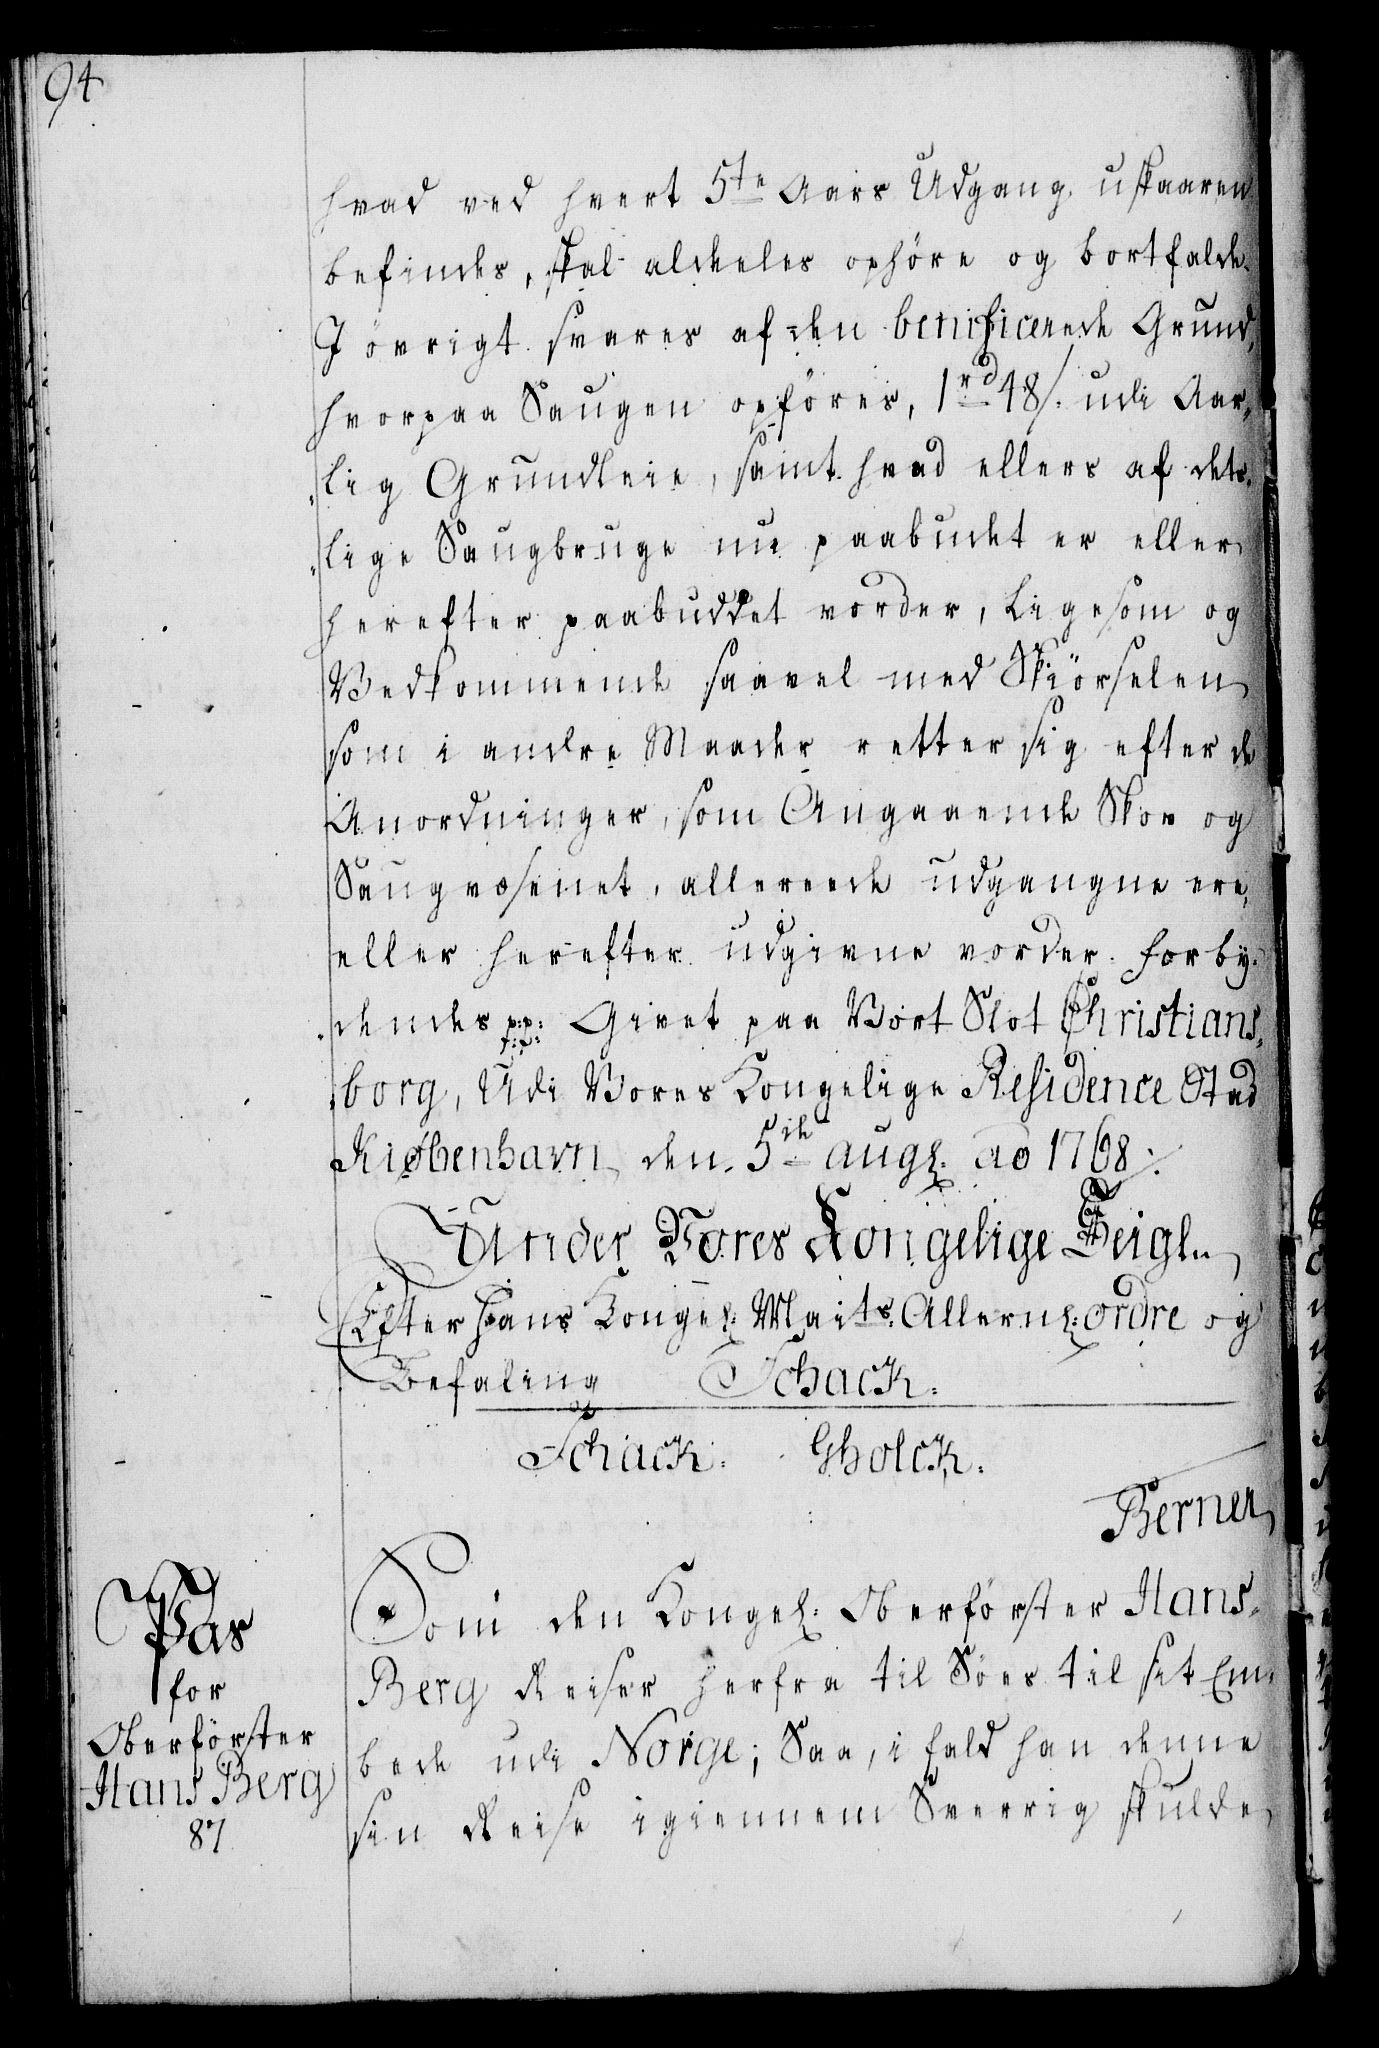 94
hvad ved hvert 5te Aars Udgang uskaaren
befindes, skal aldeles ophöre og bortfalde.
I övrigt svares af den benificerede Grund,
hvorpaa Saugen opföres, 1rd 48/: udi Aar-
lig Grundleie, samt hvad ellers af des-
lige Saugbruge nu paabudet er eller
herefter paabuddet vorder, Ligesom og
Vedkommende saavel med Skiörselen
som i andre Maader retter sig efter de
Anordninger, som Angaaende Skov og
Saugvæsenet, allereede udgangne ere,
eller herefter udgivne vorder. forby-
dendes p:p: Givet paa Vort Slot Christians-
f:f:
borg, Udi Vores Kongelige Residence Stad
Kiøbenhavn den 5te augl: ao 1768 :/
Under Vores Kongelige Seigl.
Efter Hans Kongel: Maits. Allernl: ordre og
Befaling Schack.
Schack. GHolck.
Berner
Som den Kongel: Oberförster Hans
Berg Reiser herfra til Söes til sit Em-
bede udi Norge; Saa, i fald han denne
sin Reise igiennem Sverrig skulde
Pas
for
Oberförster
Hans Berg
87